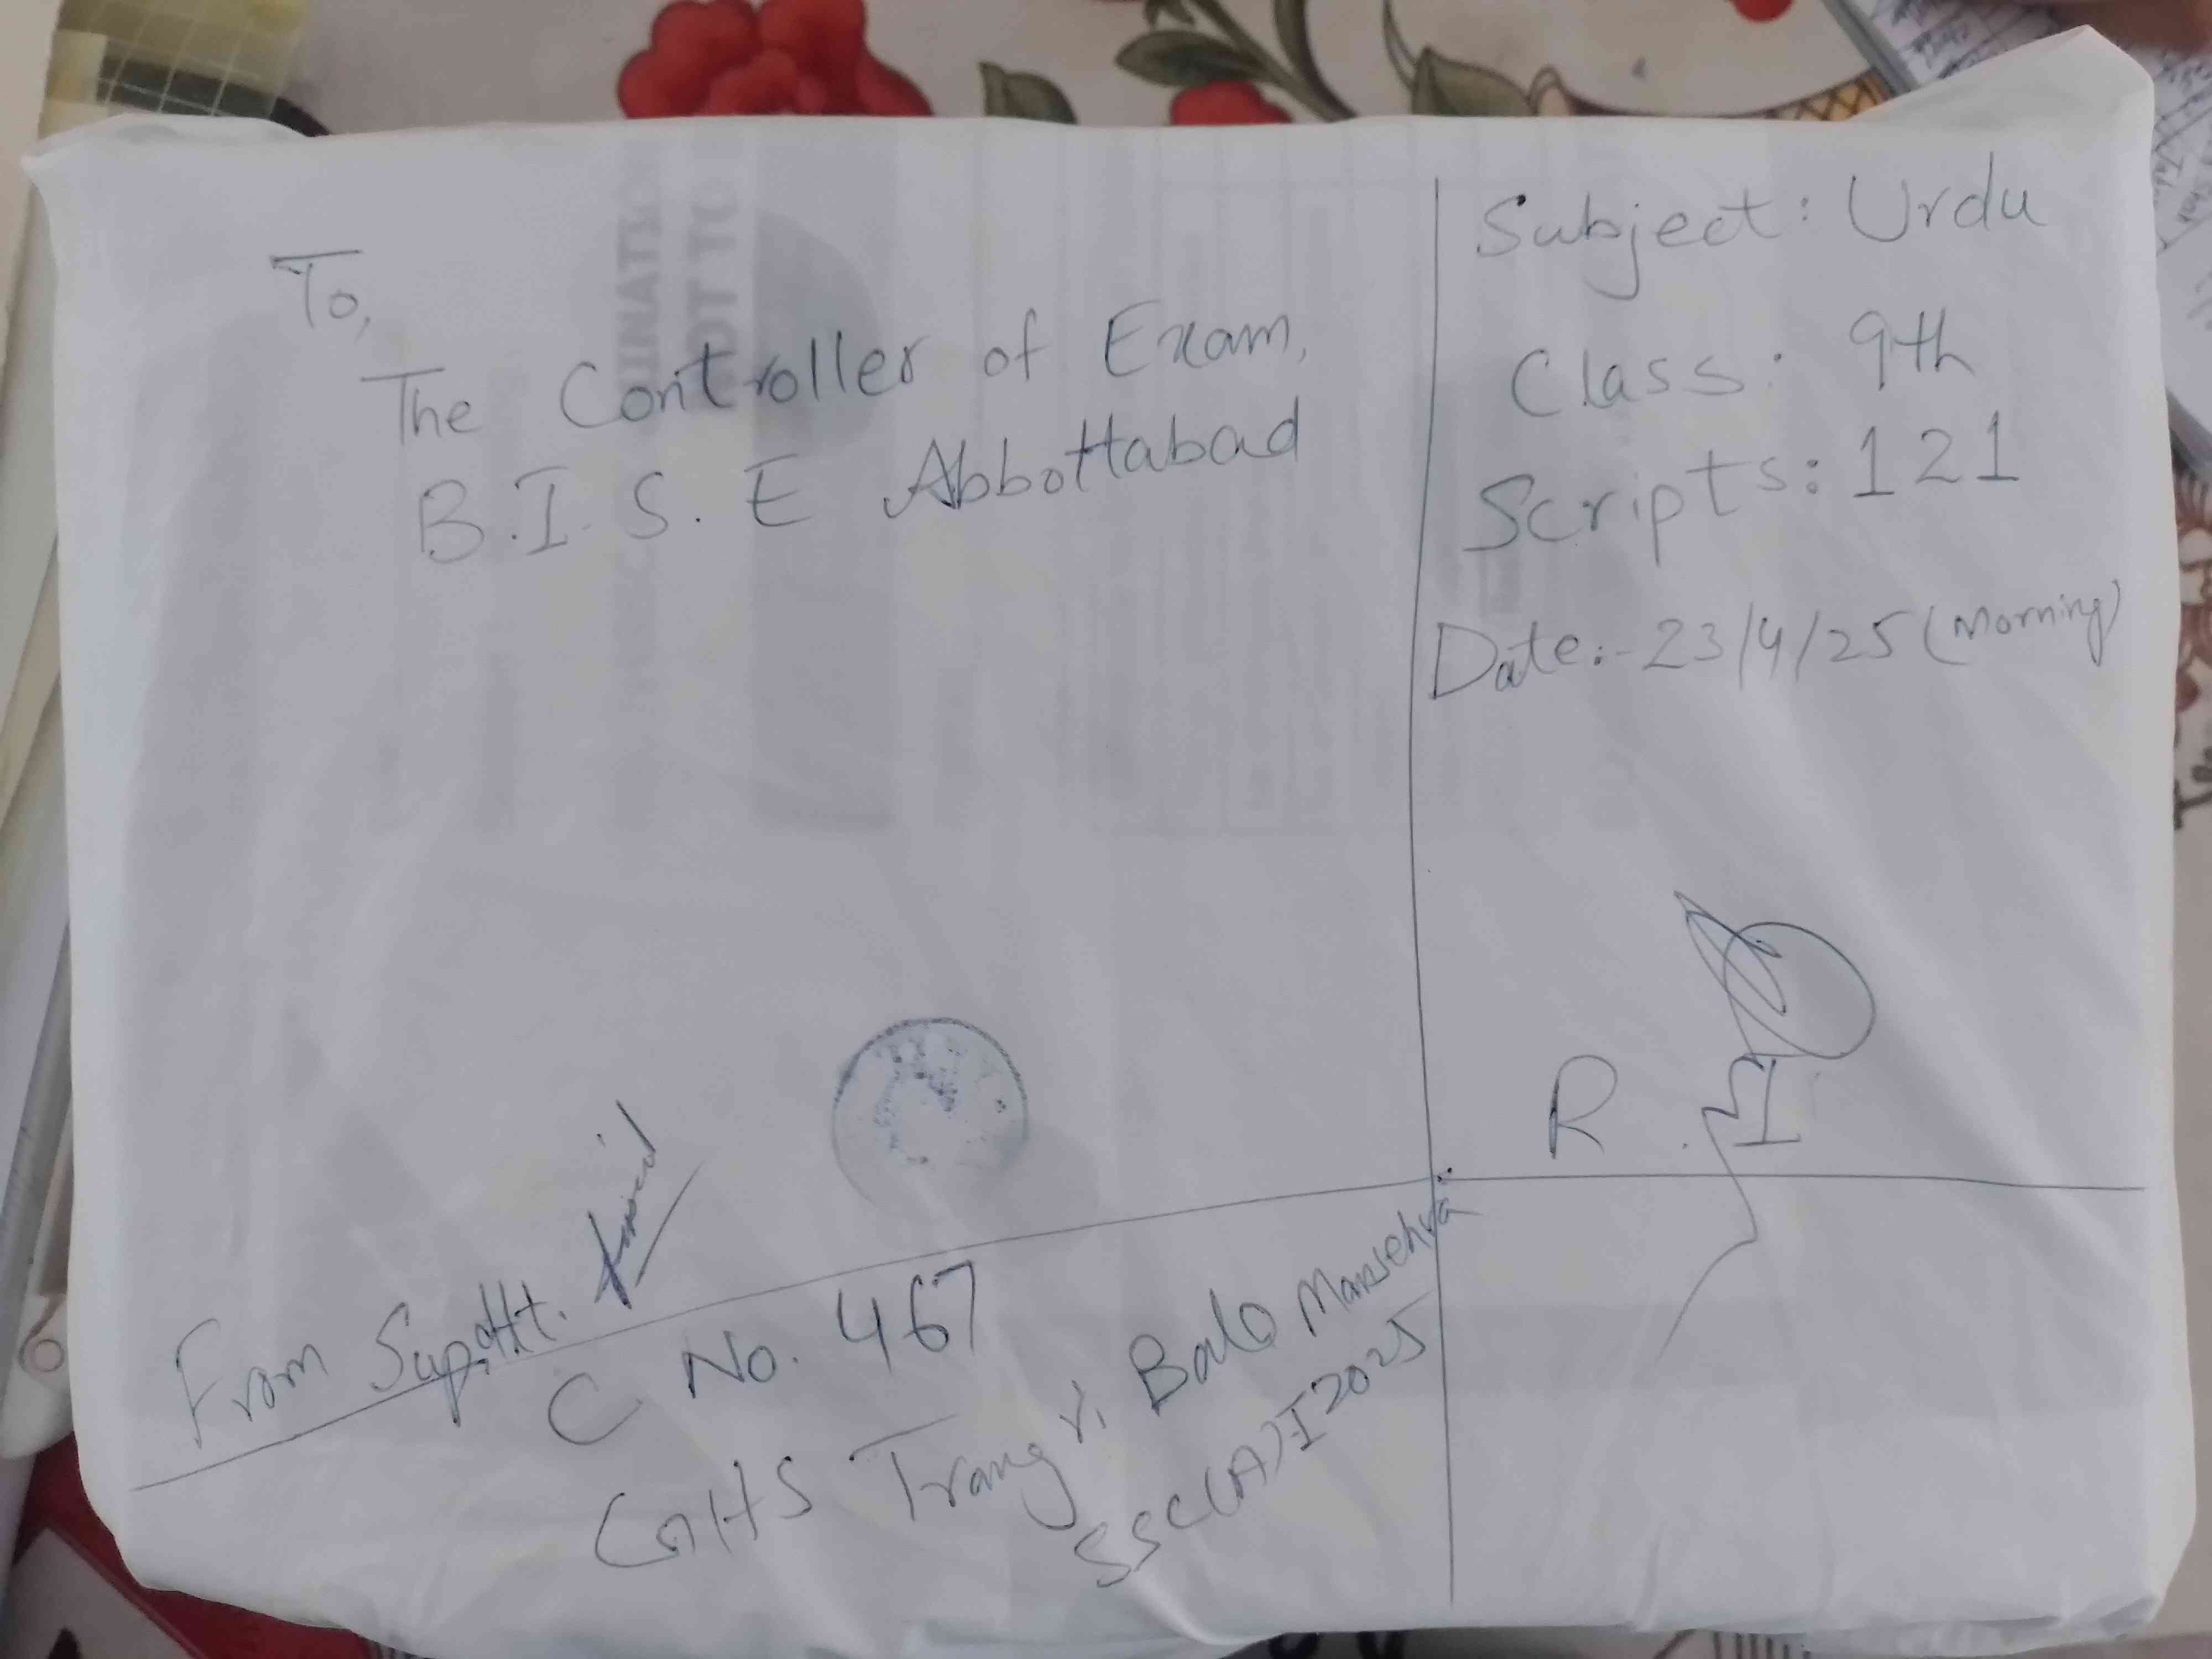 To,
The Controller of Exam,
B.I.S.E Abbottabad
Subject: Urdu
Class: 9th
Scripts: 121
Date:- 23/4/25 (Morning)
R.
From Supdtt.
C No. 467
GHS Trangri Bala Mansehra
SSC(A)I 2025